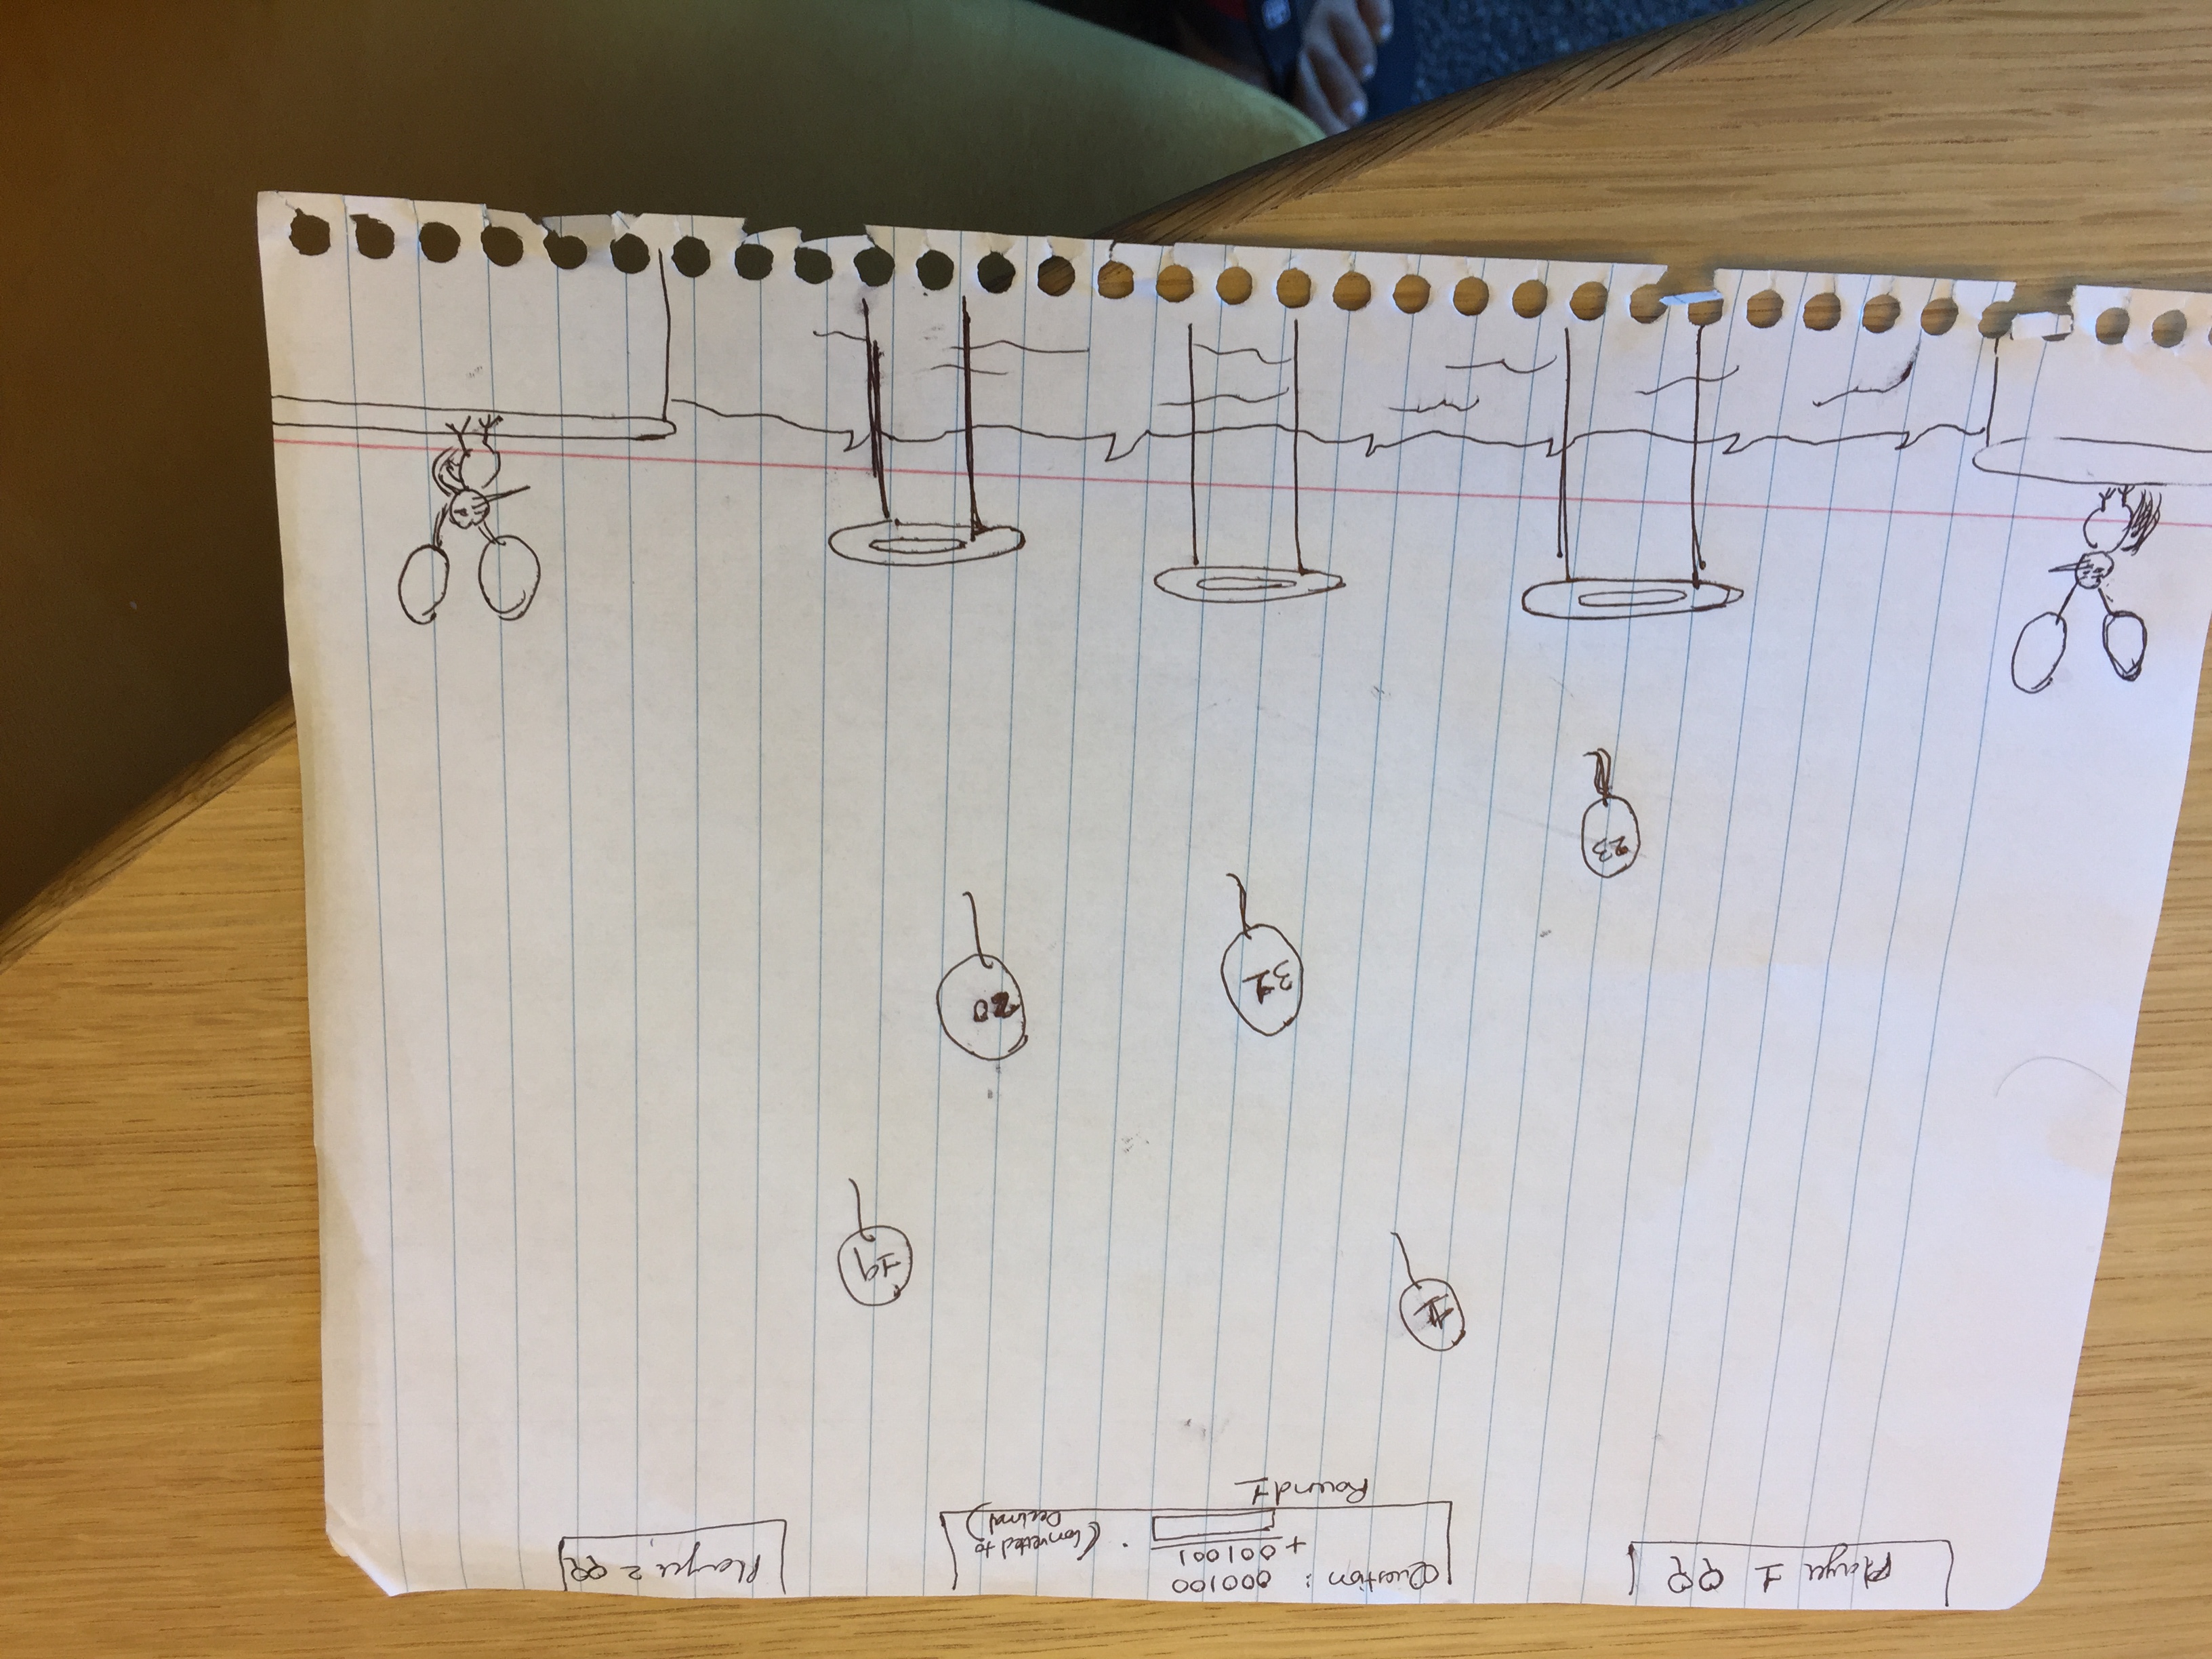 Player 1
Question: 000100
+ 001001 . (Converted to
Decimal)
Player 2
Round 1
19
31
20
23